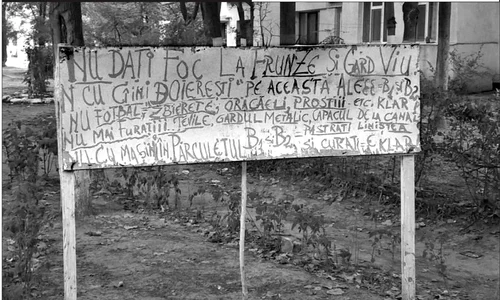 NU DAȚI FOC LA FRUNZE SI GARD VIU!
NU CU CÎINI BOIEREȘTI PE ACEASTĂ ALEE B1 SI B2
NU FOTBAL, ZBIERETE, ORĂCĂELI, PROSTIII ETC, KLAR?
NU MAI FURAȚIII ȚEVILE, GARDUL METALIC, CAPACUL DE LA CANAL
NU CU MAȘINI ÎN PĂRCULEȚUL B1 SI B2, PĂSTRAȚI LINIȘTEA
SI CURAT, E KLAR